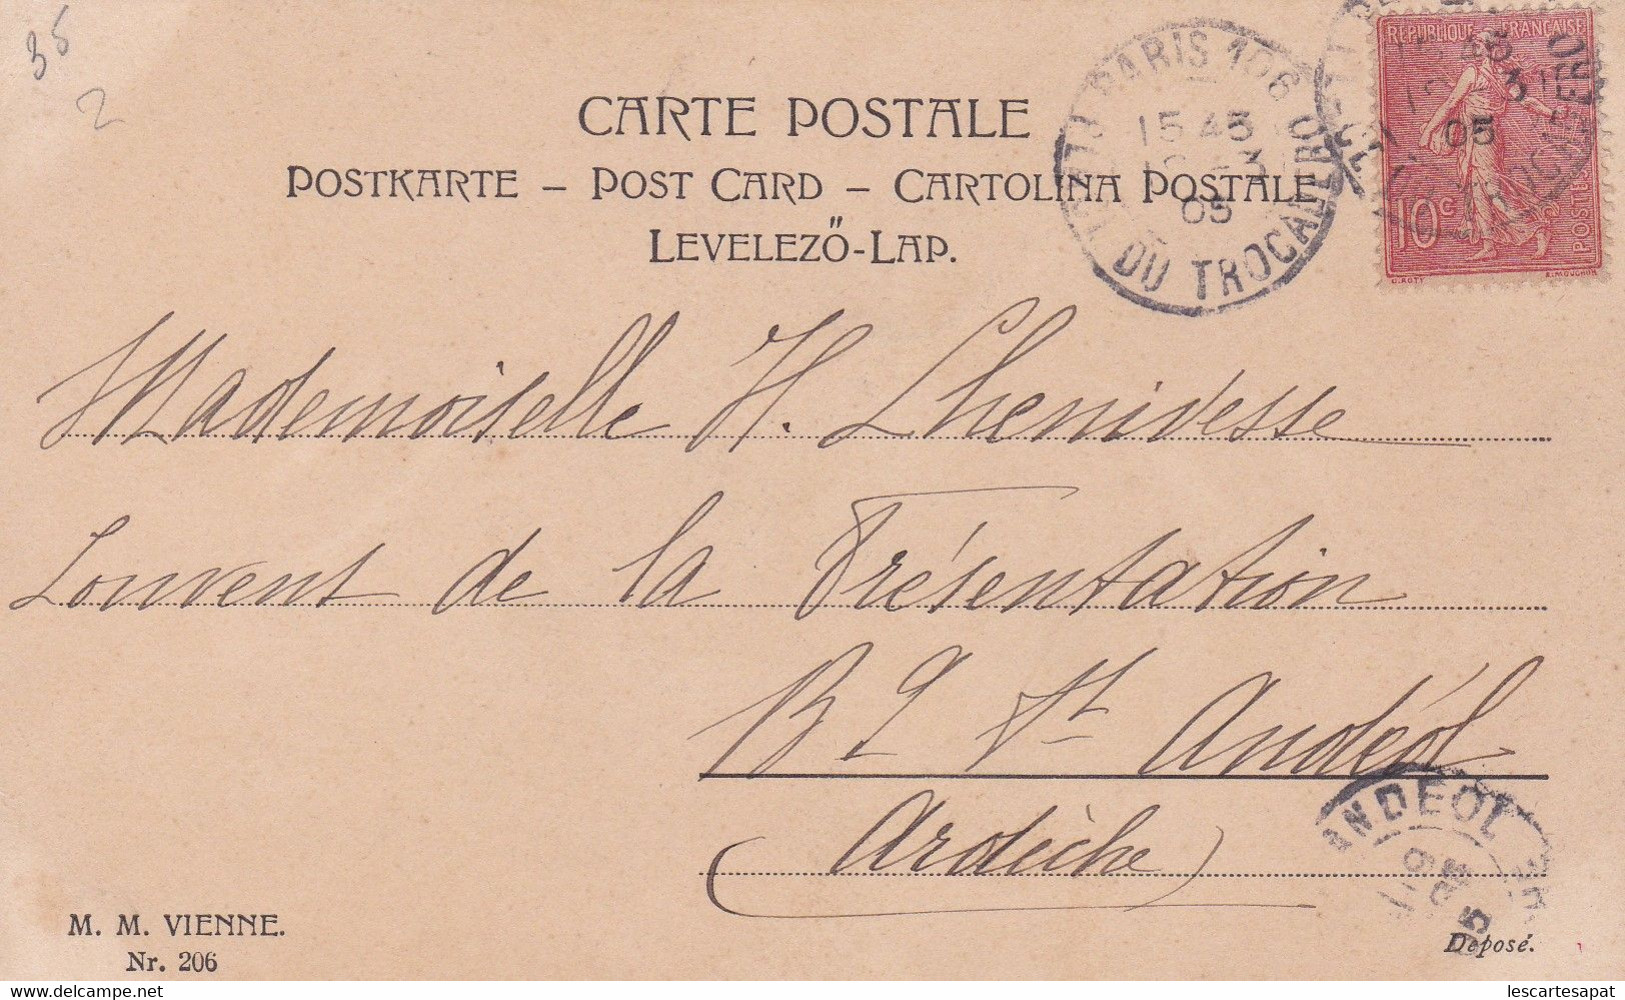 35
2
CARTE POSTALE
POSTKARTE – POST CARD – CARTOLINA POSTALE
LEVELEZŐ-LAP.
PARIS 106
15 45
3
05
DU TROCADERO
REPUBLIQUE FRANÇAISE
3
05
10 c
POSTES
O. ROTY
E. MOUCHON
Mademoiselle H. Lhenivesse
Couvent de la Présentation
Bg St Andéol
(Ardèche)
ANDEOL
05
M. M. VIENNE.
Nr. 206
Deposé.
www.delcampe.net
lescartesapat